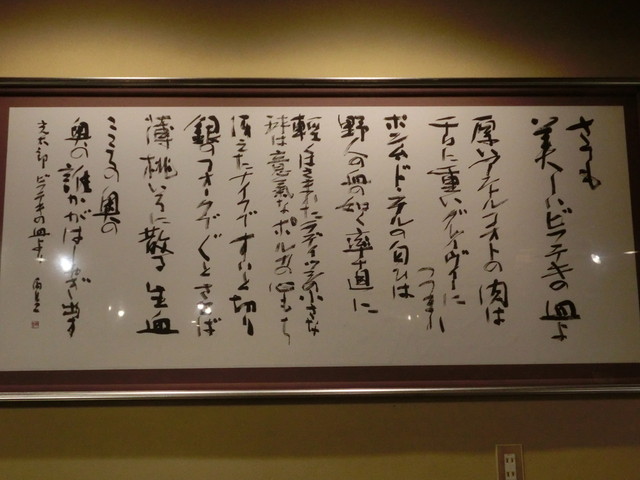 さても
美しいビフテキの皿よ
厚いアントルコオトの肉は
舌に重いグレイヴイに
つつまれ
ポンム・ド・テルの匂ひは
野人の如く率直に
軽くほまれたラディッシュの小さな
珠は意氣なポルカの心もち
冴えたナイフですいと切り
銀のフォークでぐとさせば
薄桃いろに散る生血
こころの奥の
奥の誰かがはしやぎ出す
光太郎 ビフテキの皿より